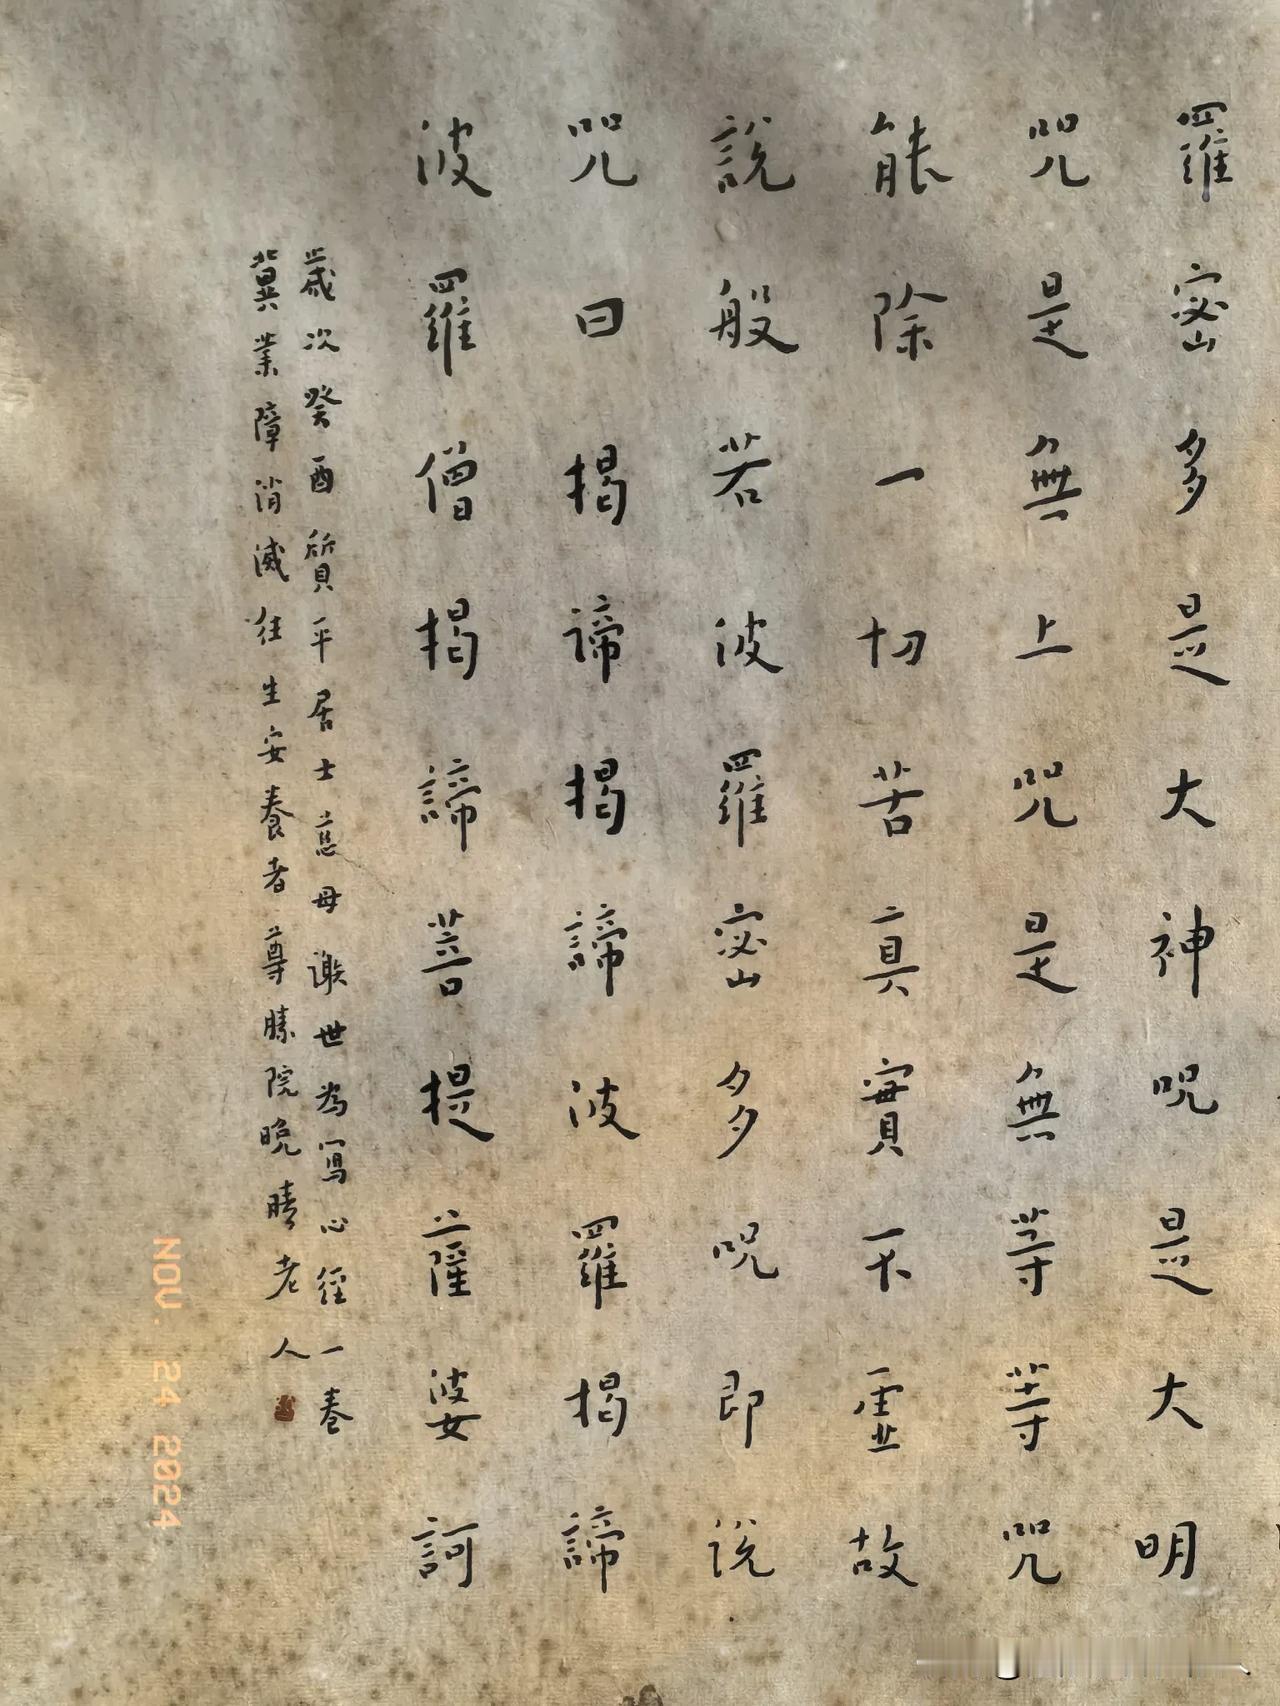 羅密多是大神呪是大明
咒是無上咒是無等等咒
能除一切苦真實不虛故
說般若波羅密多呪即说
咒曰揭諦揭諦波羅揭諦
波羅僧揭諦菩提薩婆訶
歲次癸酉質平居士慈母謝世為寫心經一卷
冀業障消滅往生安養者尊勝院晚晴老人
NOV. 24 2024